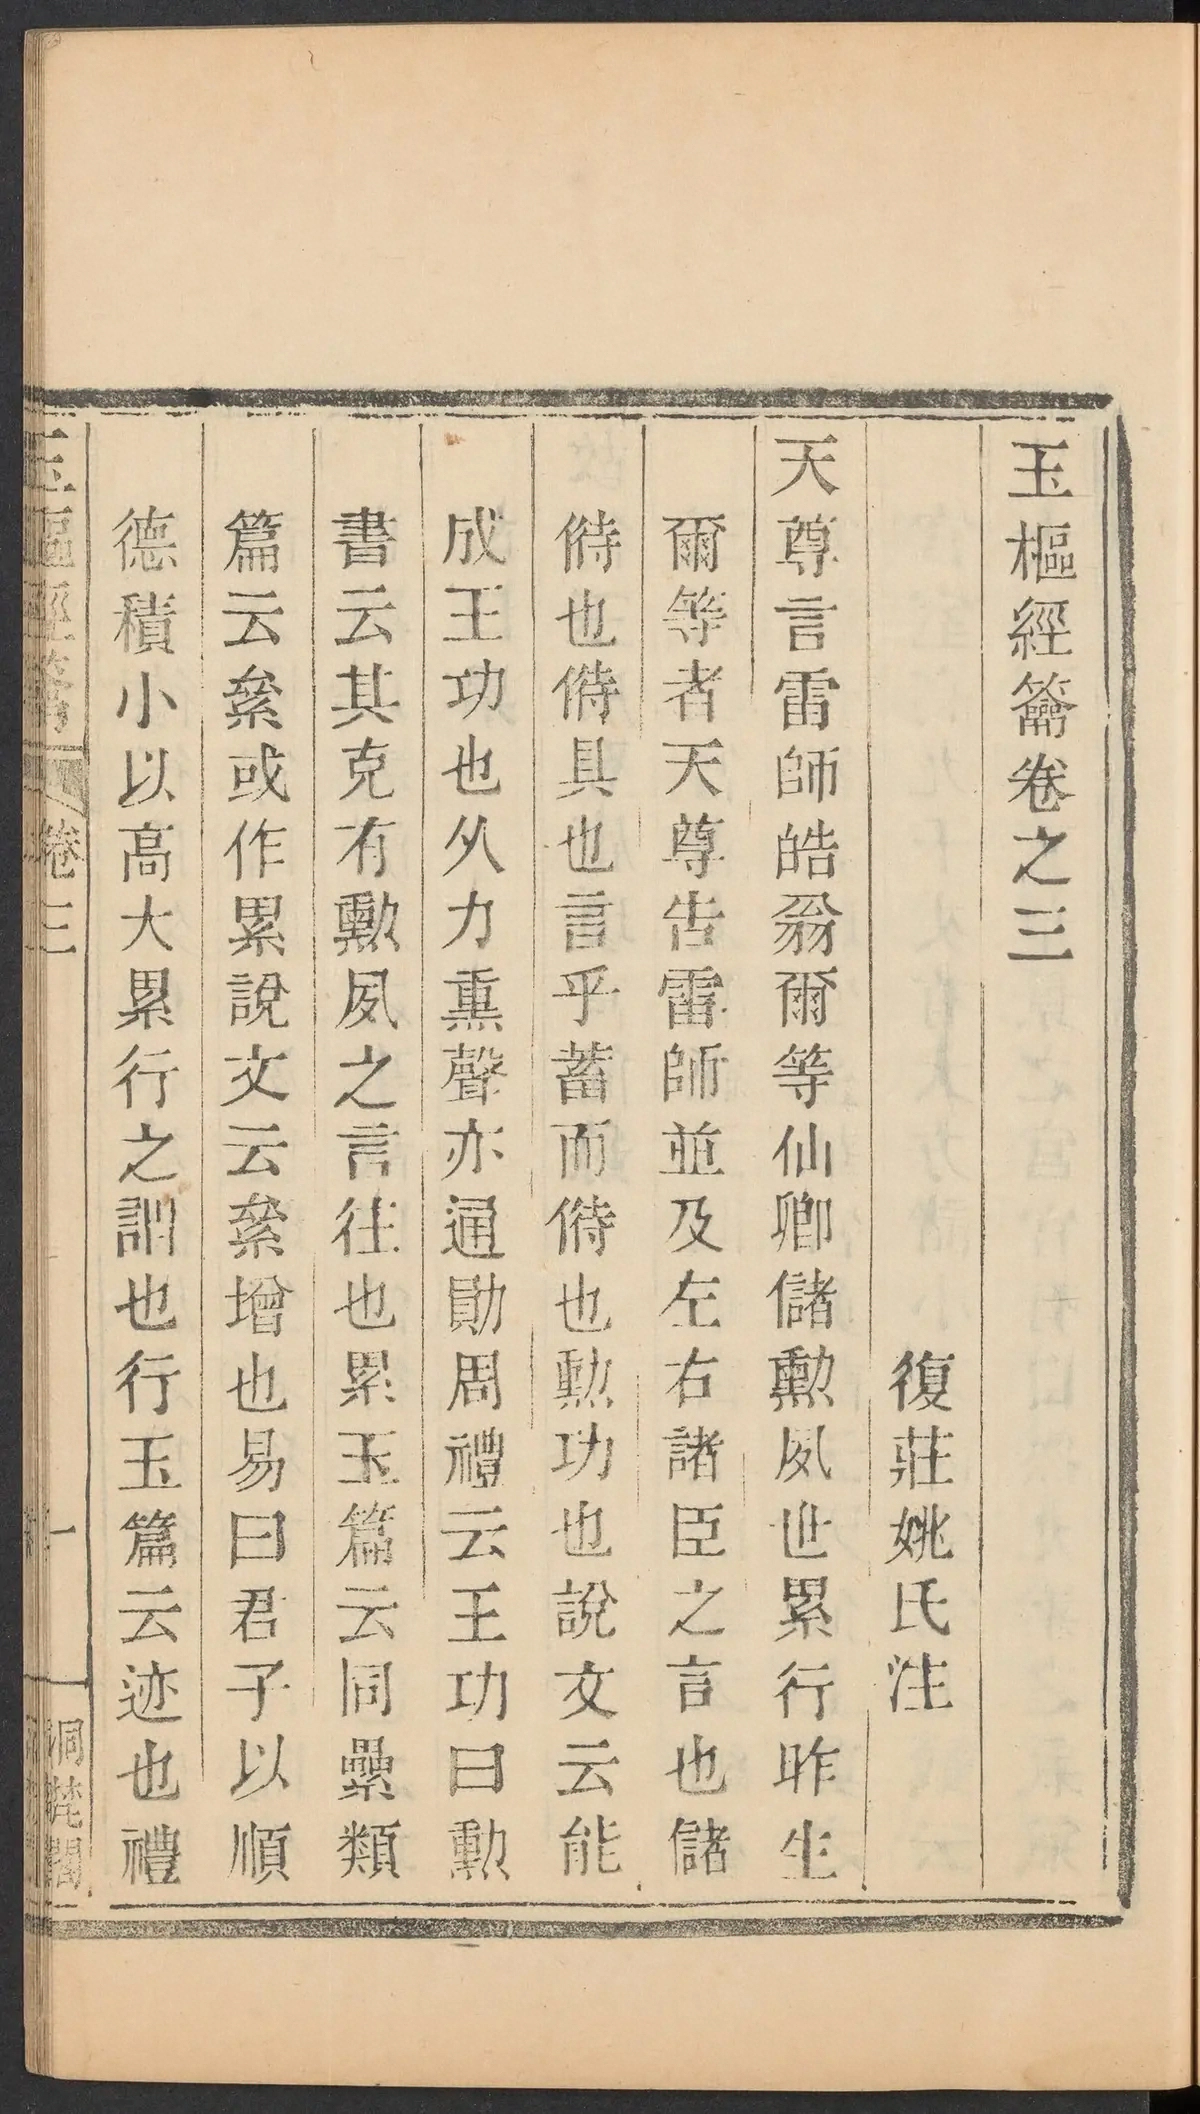 玉樞經籥卷之三
復莊姚氏注
天尊言雷師皓翁爾等仙卿儲勲夙世累行昨生
爾等者天尊告雷師並及左右諸臣之言也儲
偫也偫具也言乎蓄而偫也勲功也說文云能
成王功也从力熏聲亦通勛周禮云王功曰勲
書云其克有勲夙之言往也累玉篇云同纍類
篇云絫或作累說文云絫增也易曰君子以順
德積小以高大累行之訓也行玉篇云迹也禮
玉樞經籥 卷三 一 洞梵閣